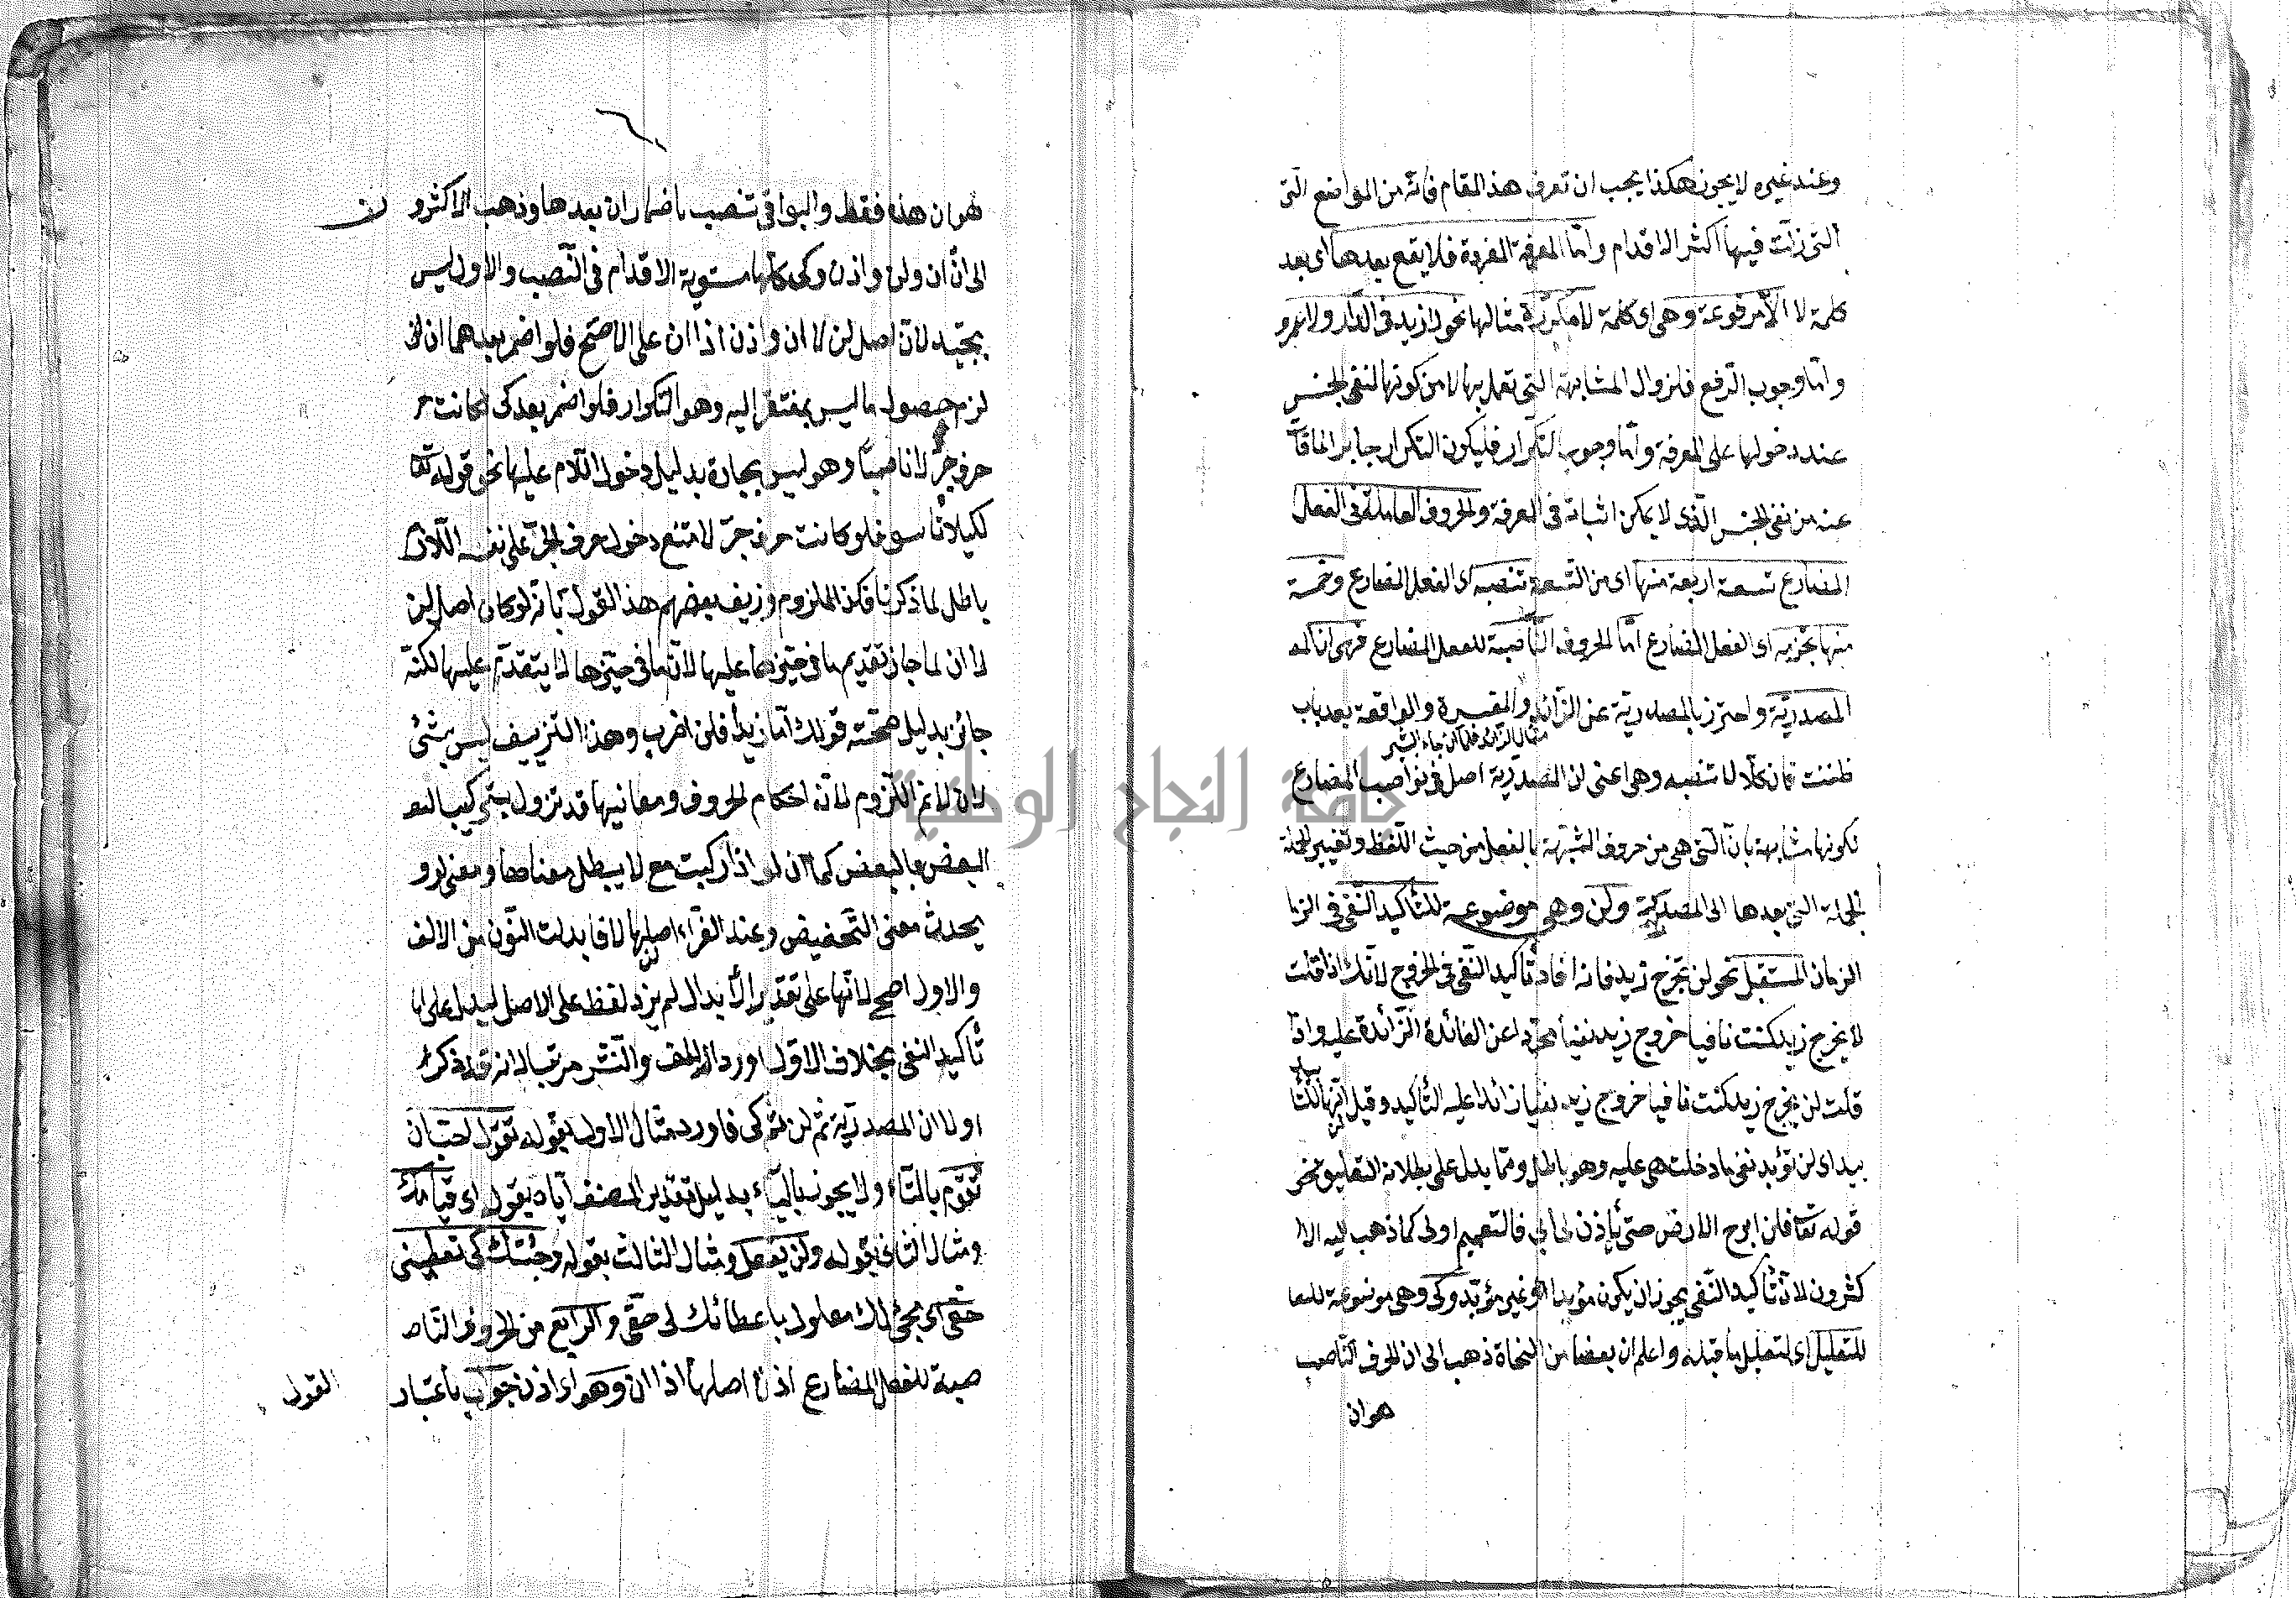 وعند غيره لا يجوز هكذا يجب ان تعرف هذا المقام فانه من المواضع التى
التى زلت فيها اكثر الاقدام وامّا المعرفة المفردة فلا يقع بعدها اى بعد
كلمة لا الّا مرفوعة وهى اى كلمة لا مكررة مثالها نحو لا زيد فى الدار ولا عمرو
وامّا وجوب الرّفع فلزوال المشابهة التى تعمل بها لا من كونها لنفى الجنس
عند دخولها على المعرفة وامّا وجوب التكرار فليكون التكرار جابرا لما فات
عنه من نفى الجنس الّذى لا يمكن اثباته فى المعرفة والحروف العاملة فى الفعل
المضارع تسعة اربعة منها اى من التسعة تنصبه اى الفعل المضارع وخمسة
منها تجزمه اى الفعل المضارع امّا الحروف النّاصبة للفعل المضارع فهى ان المـ
المصدريّة واحترز بالمصدريّة عن الزّائدة والمفسرة والواقعة بعد باب
مثال الزائدة فلمّا ان جاء البشير
ظننت فان كلّا لا تنصبه وهى اعنى ان المصدريّة اصل فى نواصب المضارع
لكونها مشابهة بانّ التى هى من حروف المشبّهة بالفعل من حيث اللّفظ وتغيير الجملة
الجملة التى بعدها الى المصدريّة ولن وهى موضوعة للتّأكيد النّفى فى الزما
الزمان المستقبل نحو لن يخرج زيد فانه افاد تأكيد النّفى فى الخروج لانّك اذا قلت
لا يخرج زيد كنت نافيا خروج زيد نفيا مجرّدا عن الفائدة الزّائدة عليه واذا
قلت لن يخرج زيد كنت نافيا خروج زيد نفيا زائدا عليه التأكيد وقيل انّها للتّأ
بيد اى لن تؤبد نفى ما دخلت هى عليه وهو باطل وممّا يدل على بطلانه التعليق نحو
قوله تعا فلن ابرح الارض حتى يأذن لى ابى فالتعميم اولى كما ذهب اليه الا
كثرون لانّ تأكيد النّفى يجوز ان يكون مؤبدا او غير مؤبّد وكى وهى موضوعة للتعا
للتعليل اى لتعليل ما قبله واعلم ان بعضا من النحاة ذهب الى ان الحرف النّاصب
هو ان
هو ان هذه فقط والبواقى تنصب باضمار ان بعدها وذهب الاكثرو ن
الى انّ ان ولن واذن وكى كلّها مستوية الاقدام فى النّصب والاول ليس
بجيّد لانّ اصل لن لا ان واذن اذا ان على الاصحّ فلو اضمر بعدهما ان
لزم حصول ما ليس بمفتقر اليه وهو التكرار فلو اضمر بعد كى لكانت
حرف جرّ لا ناصبا وهو ليس بجارة بدليل دخول اللّام عليها نحو قوله تعا
لكيلا تأسوا فلو كانت حرف جرّ لامتنع دخول حرف الجرّ على نفسه اللازم
باطل لما ذكرنا فكذا الملزوم وزيف بعضهم هذا القول بانّه لو كان اصل لن
لا ان لما جاز تقديم ما فى حيّزها عليها لانّ ما فى حيّزها لا يتقدّم عليها لكنّه
جائز بدليل صحّته قولك امّا زيدا فلن اضرب وهذا التزييف ليس بشئ
لان لا نم اللّزوم لانّ احكام الحروف ومعانيها قد تزول بتركيب البعـ
البعض بالبعض كما انّ لو اذا ركبت مع لا يبطل معناها ومعنى لو و
يحدث معنى التّحضيض وعند الفرّاء اصلها لا فابدلت النّون من الالف
والاول اصح لانّها على تقدير الابدال لم يزد لفظ على الاصل ليدل على
تأكيد النفى بخلاف الاوّل اورد اللّف والنّشر مرتبا لانه قد ذكر
اولا ان المصدريّة ثم لن ثم كى فاورد مثال الاول بقوله تقول احبّ ان
تقوم بالتّاء ولا يجوز بالياء بدليل تقدير المصنف ايّاه بقول اى قيامك
ومثال الثانى بقوله ولن يفعل ومثال الثالث بقوله وجئتك كى تعطينى
حقى اى مجئى لك معلول باعطائك لى حقّى والرّابع من الحروف النّاصـ
صبة للفعل المضارع اذن اصلها اذا ان وهو اى اذن جواب باعتبار
القول
جامعة النجاح الوطنية